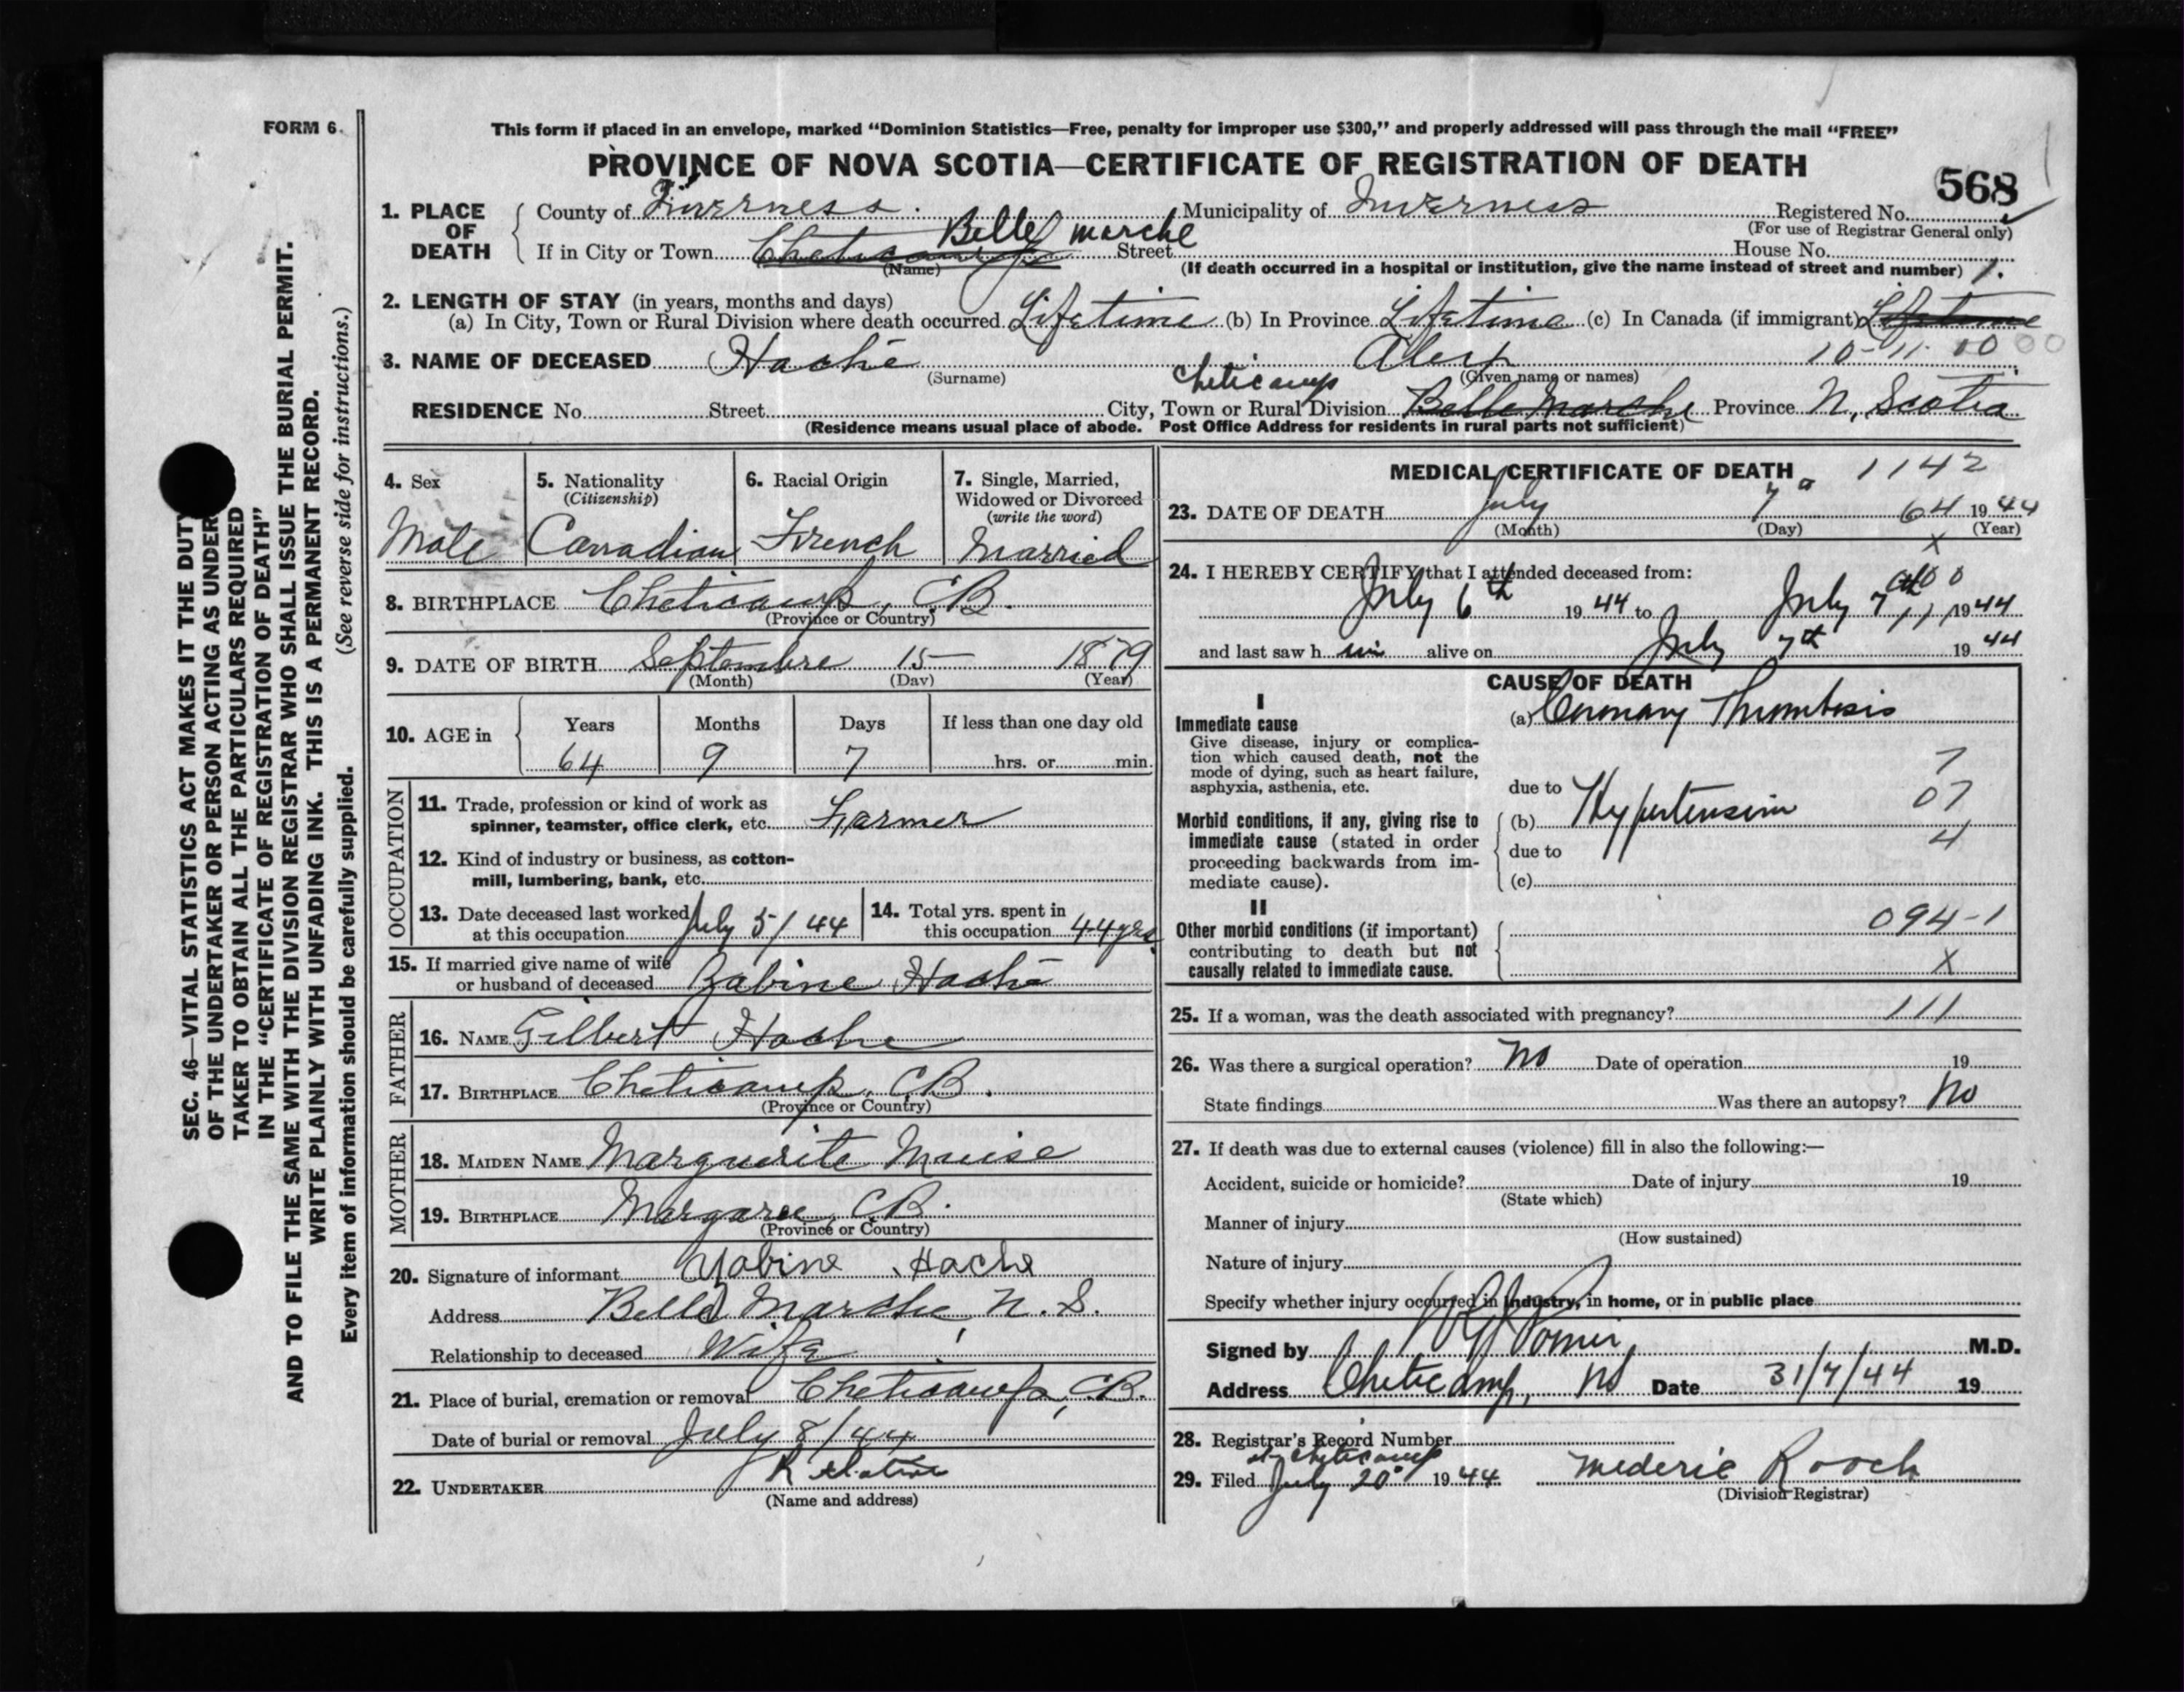 FORM 6.
This form if placed in an envelope, marked “Dominion Statistics—Free, penalty for improper use $300,” and properly addressed will pass through the mail “FREE”
PROVINCE OF NOVA SCOTIA—CERTIFICATE OF REGISTRATION OF DEATH
568
1. PLACE OF DEATH
County of Inverness. Municipality of Inverness Registered No.
(For use of Registrar General only)
If in City or Town Cheticamp Belle Marche Street House No.
(Name) (If death occurred in a hospital or institution, give the name instead of street and number) 1.
2. LENGTH OF STAY (in years, months and days)
(a) In City, Town or Rural Division where death occurred Lifetime (b) In Province Lifetime (c) In Canada (if immigrant) Lifetime
3. NAME OF DECEASED Haché 10-11-00 00
(Surname) (Given name or names)
Cheticamp
RESIDENCE No. Street City, Town or Rural Division Belle Marche Province N, Scotia
(Residence means usual place of abode. Post Office Address for residents in rural parts not sufficient)
4. Sex
Male
5. Nationality
(Citizenship)
Canadian
6. Racial Origin
French
7. Single, Married,
Widowed or Divorced
(write the word)
Married
8. BIRTHPLACE Cheticamp, C.B.
(Province or Country)
9. DATE OF BIRTH Septembre 15 1879
(Month) (Day) (Year)
10. AGE in
Years Months Days If less than one day old
64 9 7 hrs. or min.
OCCUPATION
11. Trade, profession or kind of work as
spinner, teamster, office clerk, etc. Farmer
12. Kind of industry or business, as cotton-
mill, lumbering, bank, etc.
13. Date deceased last worked
at this occupation July 5/44
14. Total yrs. spent in
this occupation 44 yrs
15. If married give name of wife
or husband of deceased Zabine Haché
FATHER
16. NAME Gilbert Hache
17. BIRTHPLACE Cheticamp, C.B.
(Province or Country)
MOTHER
18. MAIDEN NAME Marguerite Muise
19. BIRTHPLACE Margaree, C.B.
(Province or Country)
20. Signature of informant Hache
Address Belle Marche, N.S.
Relationship to deceased Wife
21. Place of burial, cremation or removal Cheticamp, C.B.
Date of burial or removal July 8/44
22. UNDERTAKER Relative
(Name and address)
MEDICAL CERTIFICATE OF DEATH 1142
23. DATE OF DEATH July 7 64 1944
(Month) (Day) (Year)
X
24. I HEREBY CERTIFY that I attended deceased from:
July 6th 1944 to July 7th 1944
and last saw him alive on July 7th 1944
CAUSE OF DEATH
I
Immediate cause
Give disease, injury or complica-
tion which caused death, not the
mode of dying, such as heart failure,
asphyxia, asthenia, etc.
(a) Coronary Thrombosis
7
due to
07
Morbid conditions, if any, giving rise to
immediate cause (stated in order
proceeding backwards from im-
mediate cause).
(b) Hypertension
4
due to
(c)
II
Other morbid conditions (if important)
contributing to death but not
causally related to immediate cause.
094-1
X
25. If a woman, was the death associated with pregnancy? 111
26. Was there a surgical operation? No Date of operation 19
State findings Was there an autopsy? No
27. If death was due to external causes (violence) fill in also the following:—
Accident, suicide or homicide? Date of injury 19
(State which)
Manner of injury
(How sustained)
Nature of injury
Specify whether injury occurred in industry, in home, or in public place
Signed by M.D.
Address Cheticamp, NS Date 31/7/44 19
28. Registrar's Record Number
at Cheticamp
29. Filed July 20 1944 Mederic Roach
(Division Registrar)
SEC. 46—VITAL STATISTICS ACT MAKES IT THE DUTY
OF THE UNDERTAKER OR PERSON ACTING AS UNDER
TAKER TO OBTAIN ALL THE PARTICULARS REQUIRED
IN THE “CERTIFICATE OF REGISTRATION OF DEATH”
AND TO FILE THE SAME WITH THE DIVISION REGISTRAR WHO SHALL ISSUE THE BURIAL PERMIT.
WRITE PLAINLY WITH UNFADING INK. THIS IS A PERMANENT RECORD.
Every item of information should be carefully supplied. (See reverse side for instructions.)